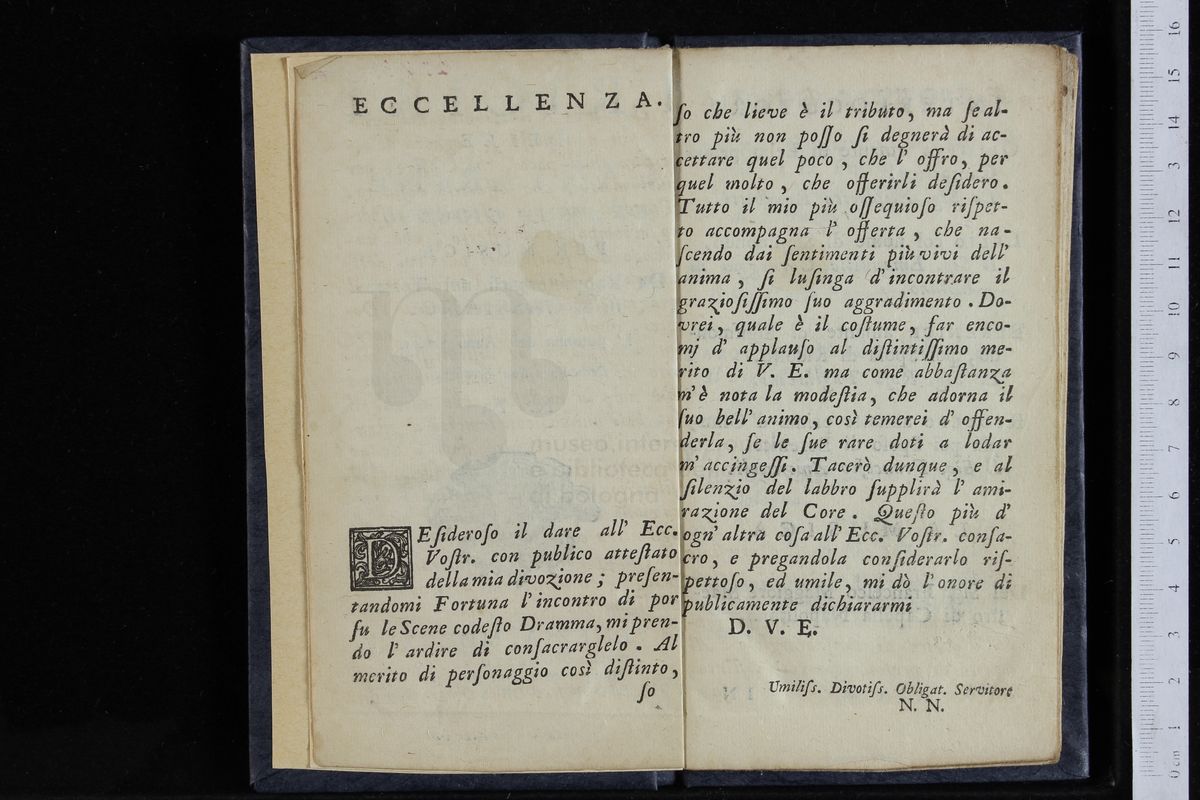 ECCELLENZA.
DEſideroſo il dare all' Ecc.
Voſtr. con publico atteſtato
della mia divozione; preſen-
tandomi Fortuna l'incontro di por
ſu le Scene codeſto Dramma, mi pren-
do l' ardire di conſacrarglelo. Al
merito di perſonaggio così diſtinto,
ſo
ſo che lieve è il tributo, ma ſe al-
tro più non poſſo ſi degnerà di ac-
cettare quel poco, che l' offro, per
quel molto, che offerirli deſidero.
Tutto il mio più oſſequioſo riſpet-
to accompagna l' offerta, che na-
ſcendo dai ſentimenti più vivi dell'
anima, ſi luſinga d'incontrare il
grazioſiſſimo ſuo aggradimento. Do-
vrei, quale è il coſtume, far enco-
mj d' applauſo al diſtintiſſimo me-
rito di V. E. ma come abbaſtanza
m'è nota la modeſtia, che adorna il
ſuo bell' animo, così temerei d' offen-
derla, ſe le ſue rare doti a lodar
m' accingeſſi. Tacerò dunque, e al
ſilenzio del labbro ſupplirà l' ami-
razione del Core. Queſto più d'
ogn' altra coſa all' Ecc. Voſtr. conſa-
cro, e pregandola conſiderarlo riſ-
pettoſo, ed umile, mi dò l'onore di
publicamente dichiararmi
D. V. E.
Umiliſs. Divotiſs. Obligat. Servitore
N. N.
museo inter
e biblioteca
di bologna
0 cm 1 2 3 4 5 6 7 8 9 10 11 12 13 14 15 16